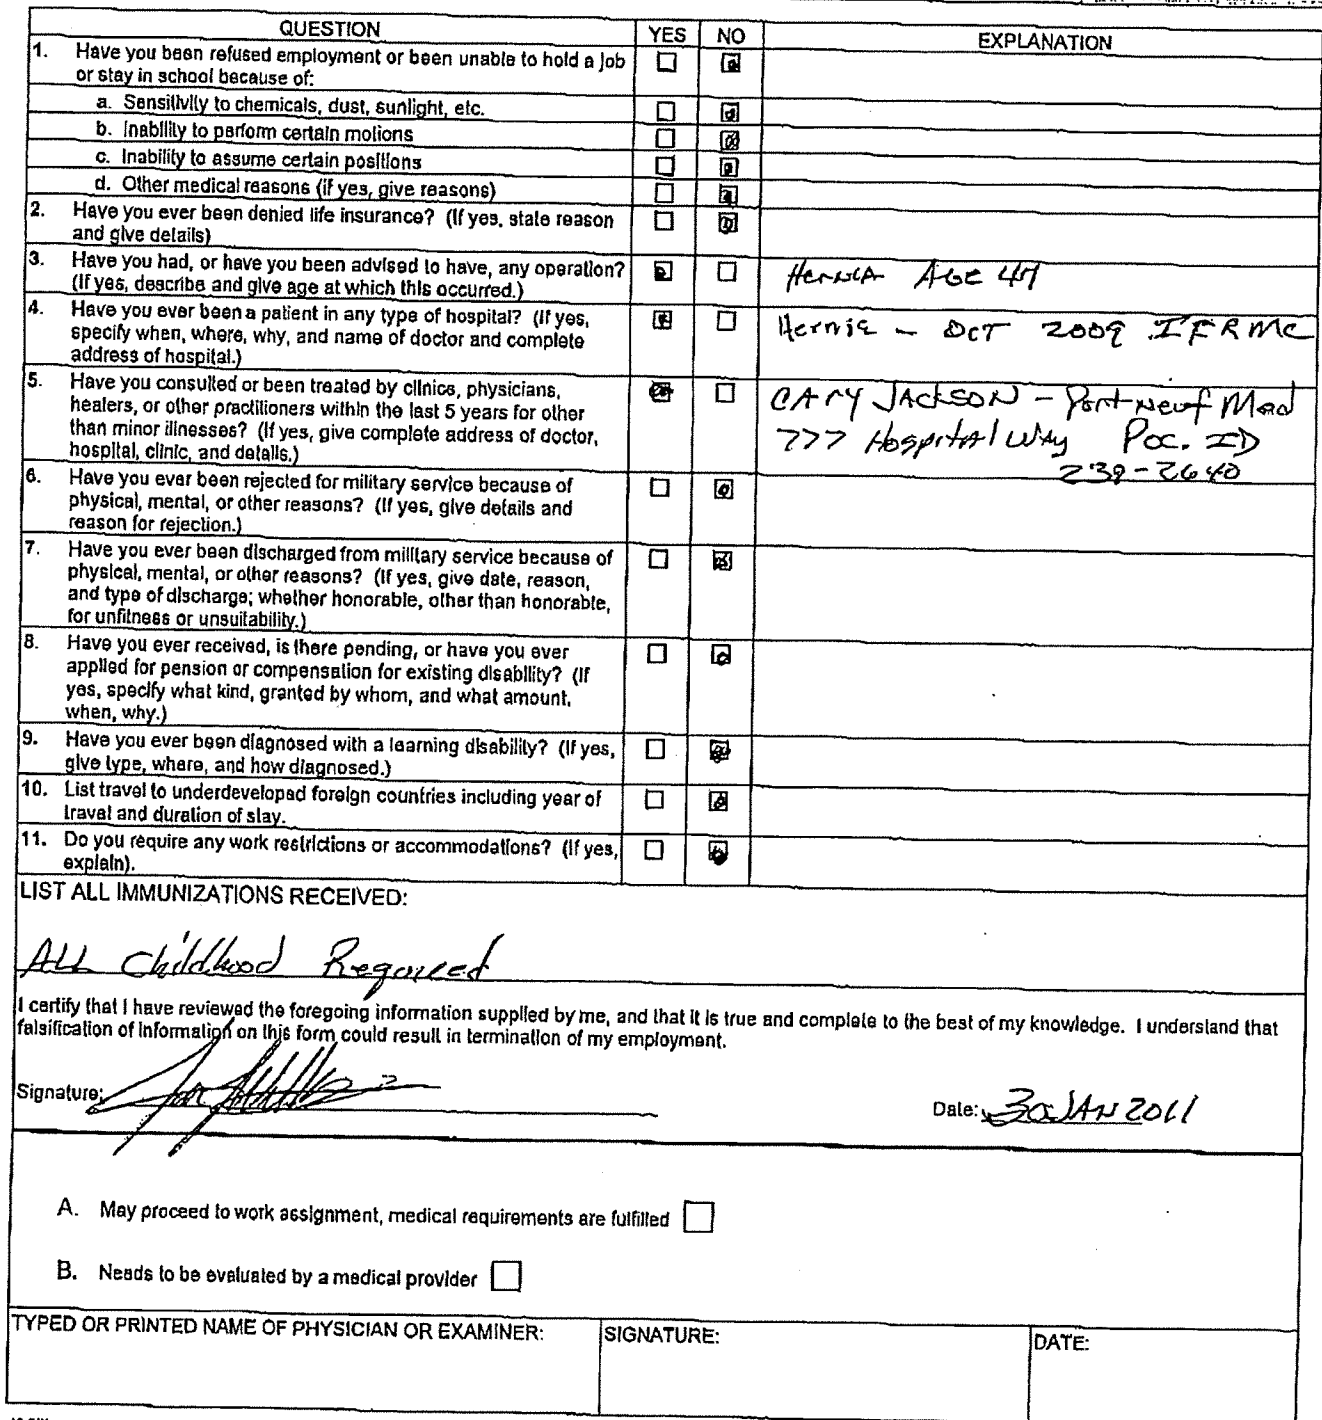 QUESTION YES NO EXPLANATION
1. Have you been refused employment or been unable to hold a job
or stay in school because of:
a. Sensitivity to chemicals, dust, sunlight, etc.
b. Inability to perform certain motions
c. Inability to assume certain positions
d. Other medical reasons (if yes, give reasons)
2. Have you ever been denied life insurance? (If yes, state reason
and give details)
3. Have you had, or have you been advised to have, any operation?
(If yes, describe and give age at which this occurred.)
Hernia Age 47
4. Have you ever been a patient in any type of hospital? (If yes,
specify when, where, why, and name of doctor and complete
address of hospital.)
Hernia - Oct 2009 IFRMC
5. Have you consulted or been treated by clinics, physicians,
healers, or other practitioners within the last 5 years for other
than minor illnesses? (If yes, give complete address of doctor,
hospital, clinic, and details.)
CARY JACKSON - Portneuf Med
777 Hospital Way Poc. ID
239-2640
6. Have you ever been rejected for military service because of
physical, mental, or other reasons? (If yes, give details and
reason for rejection.)
7. Have you ever been discharged from military service because of
physical, mental, or other reasons? (If yes, give date, reason,
and type of discharge; whether honorable, other than honorable,
for unfitness or unsuitability.)
8. Have you ever received, is there pending, or have you ever
applied for pension or compensation for existing disability? (If
yes, specify what kind, granted by whom, and what amount,
when, why.)
9. Have you ever been diagnosed with a learning disability? (If yes,
give type, where, and how diagnosed.)
10. List travel to underdeveloped foreign countries including year of
travel and duration of stay.
11. Do you require any work restrictions or accommodations? (If yes,
explain).
LIST ALL IMMUNIZATIONS RECEIVED:
ALL Childhood Required
I certify that I have reviewed the foregoing information supplied by me, and that it is true and complete to the best of my knowledge. I understand that
falsification of information on this form could result in termination of my employment.
Signature: Date: 30 JAN 2011
A. May proceed to work assignment, medical requirements are fulfilled
B. Needs to be evaluated by a medical provider
TYPED OR PRINTED NAME OF PHYSICIAN OR EXAMINER: SIGNATURE: DATE: